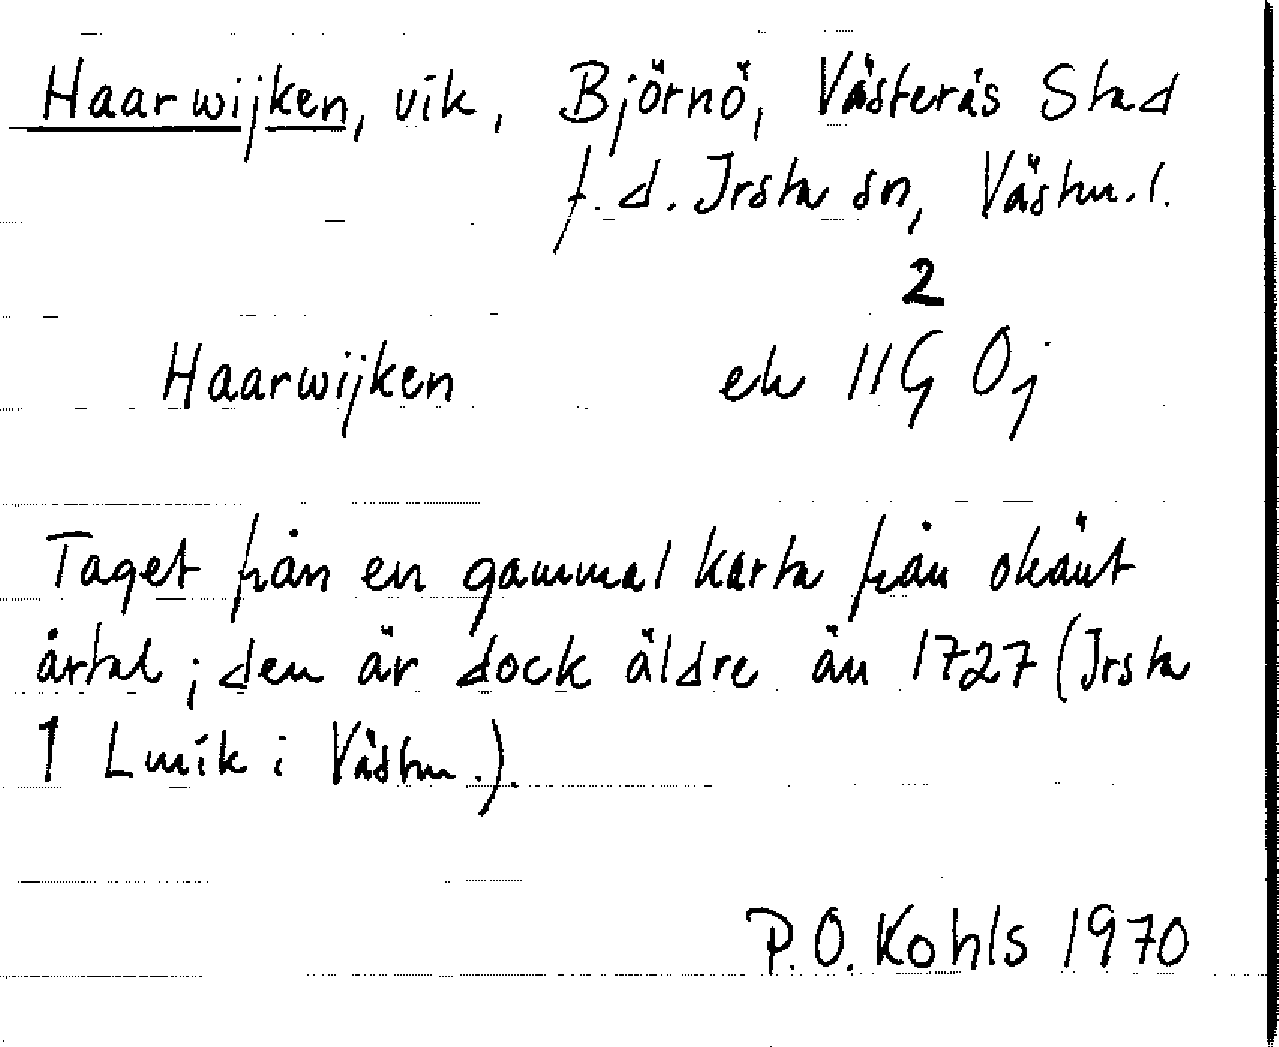 Haarwijken, vik, Björnö, Västerås Stad
f.d. Irsta sn, Västm.l.
2
Haarwijken ek 11G 0j
Taget från en gammal karta från okänt
årtal; den är dock äldre än 1727 (Irsta
1 Lmik i Västm.).
P.O. Kohls 1970